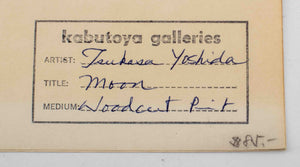 kabutoya galleries
ARTIST: Tsukasa Yoshida
TITLE: Moon
MEDIUM: Woodcut Print
$80.-